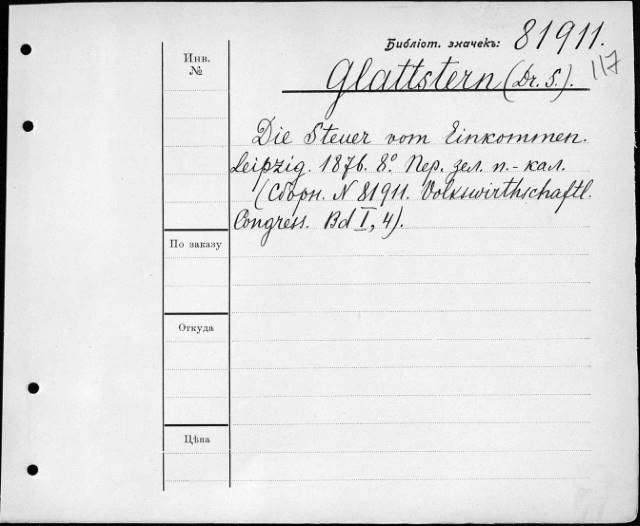 Библіот. значекъ: 81911.
Инв. №
Glattstern (Dr. S.). 117
Die Steuer vom Einkommen.
Leipzig. 1876. 8º. Пер. зел. п.-кал.
(Сборн. N 81911. Volkswirthschaftl.
Congress. Bd I, 4).
По заказу
Откуда
Цѣна